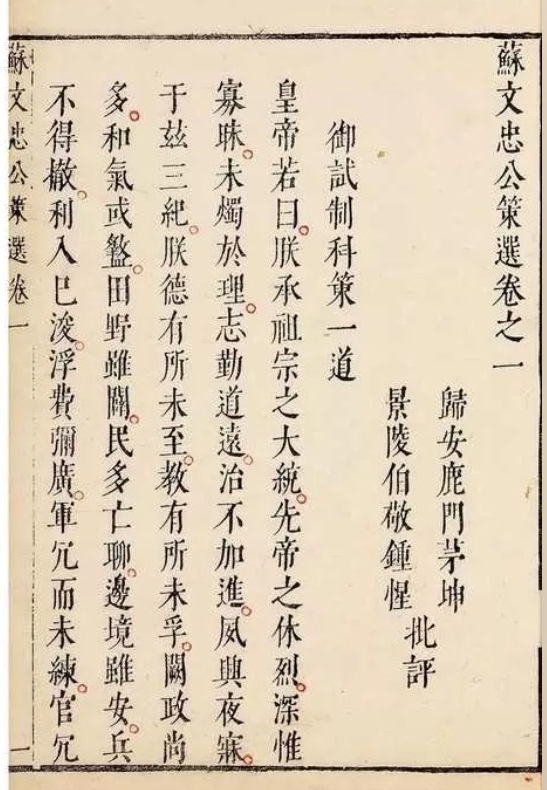 蘇文忠公策選卷之一
歸安鹿門茅坤
景陵伯敬鍾惺
批評
御試制科策一道
皇帝若曰。朕承祖宗之大統。先帝之休烈。深惟
寡昧。未燭於理。志勤道遠。治不加進。夙興夜寐。
于茲三紀。朕德有所未至。教有所未孚。闕政尚
多。和氣或盭。田野雖闢。民多亡聊。邊境雖安。兵
不得撤。利入已浚。浮費彌廣。軍冗而未練。官冗
蘇文忠公策選卷一 一